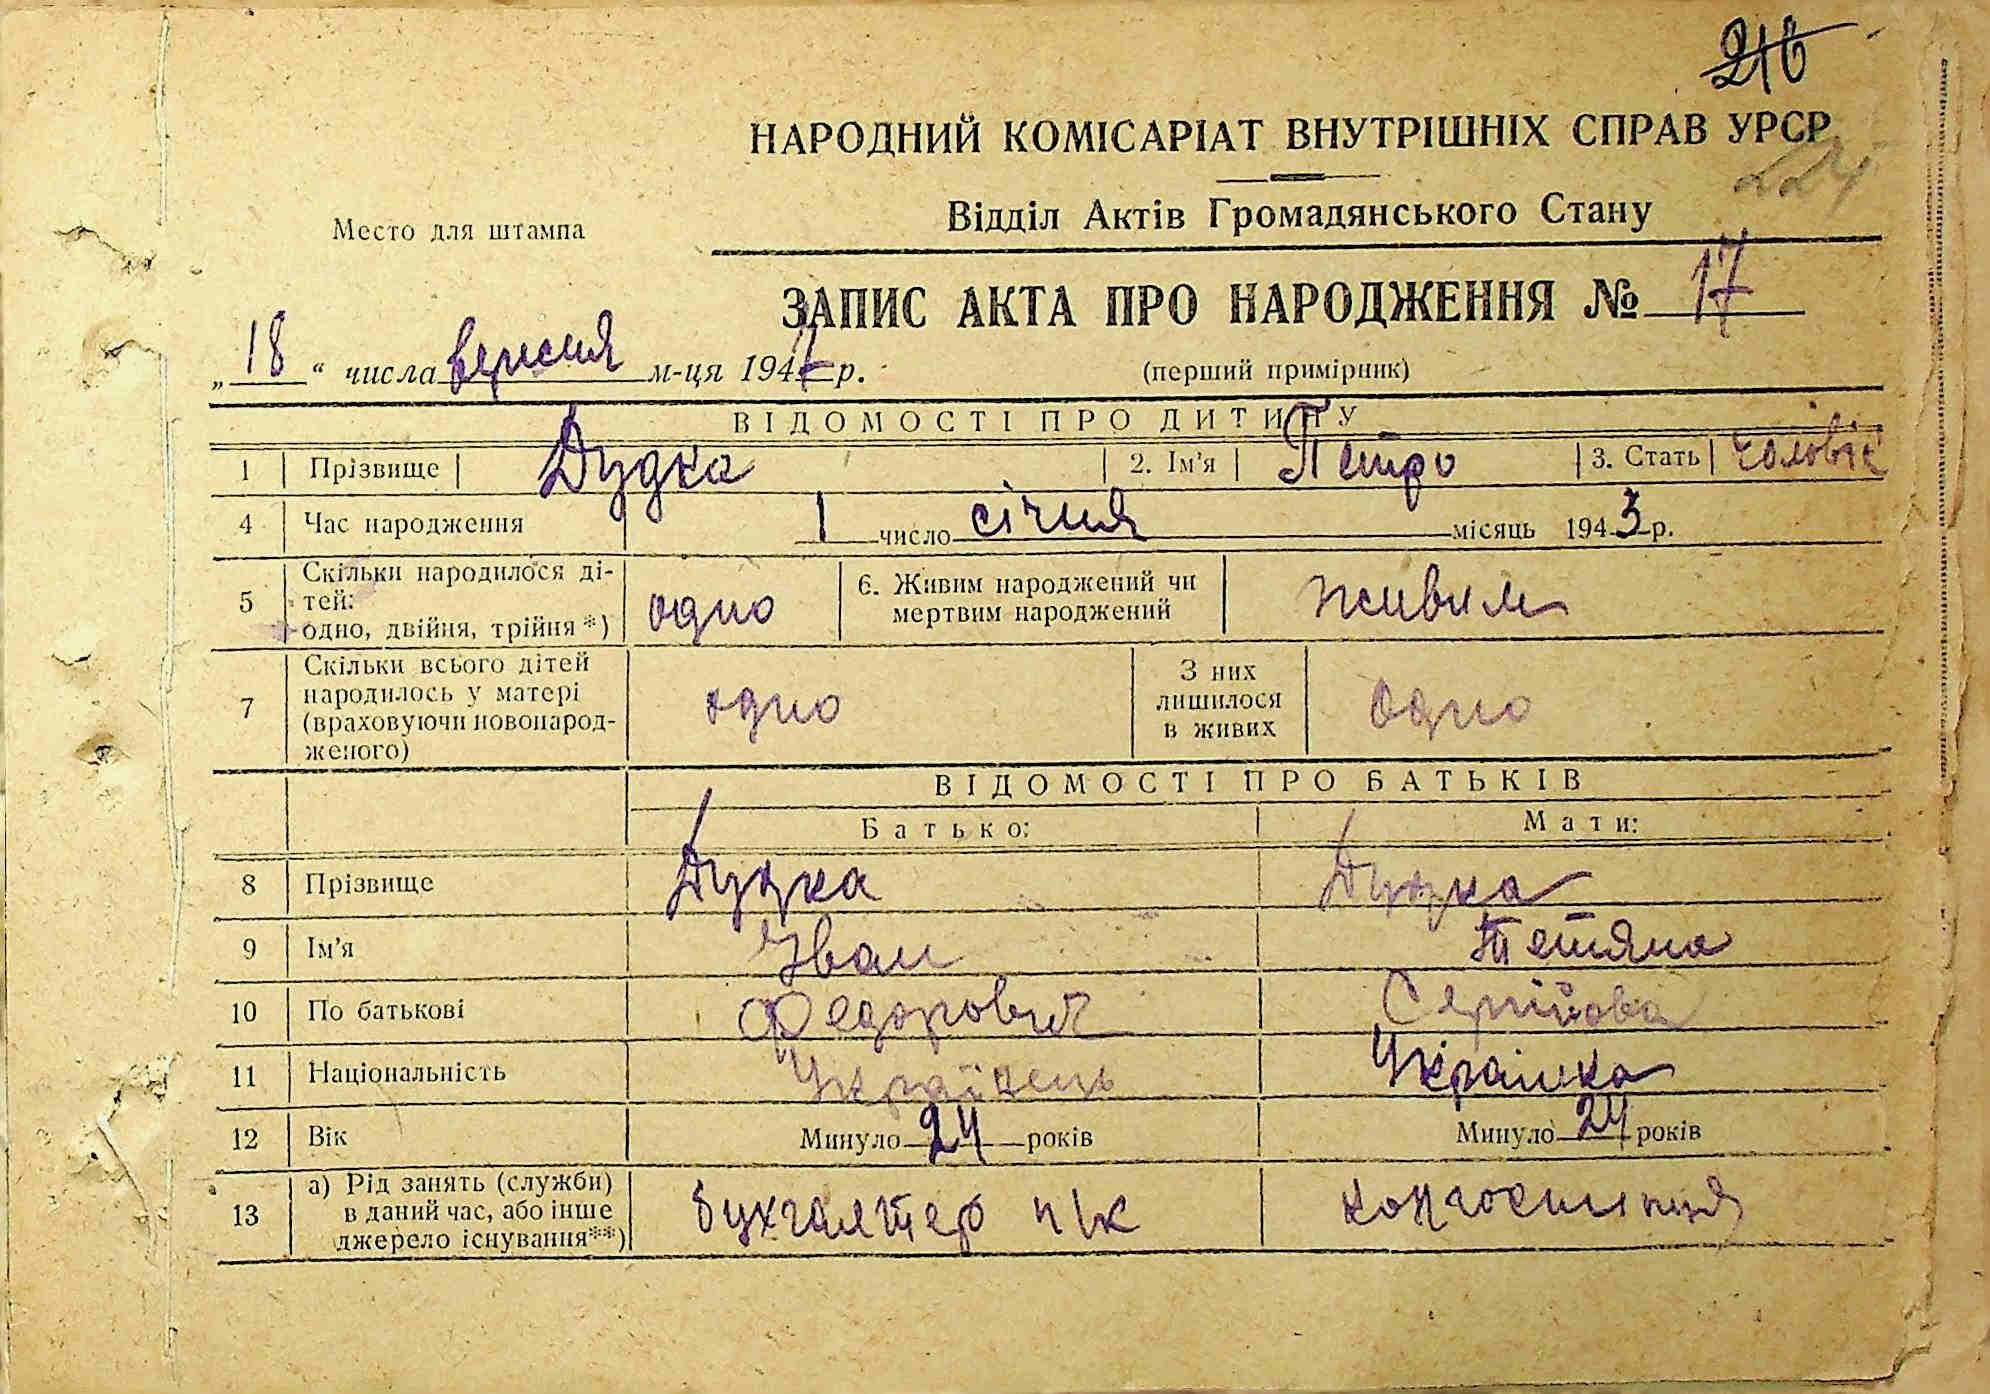 216
НАРОДНИЙ КОМІСАРІАТ ВНУТРІШНІХ СПРАВ УРСР
224
Відділ Актів Громадянського Стану
Место для штампа
ЗАПИС АКТА ПРО НАРОДЖЕННЯ № 17
„18“ числа вересня м-ця 1947 р.
(перший примірник)
ВІДОМОСТІ ПРО ДИТИНУ
1 Прізвище Дудка 2. Ім'я Петро 3. Стать чоловіч
4 Час народження 1 число січня місяць 1943 р.
5 Скільки народилося ді-
тей:
одно, двійня, трійня*) одно
6. Живим народжений чи
мертвим народжений живим
7 Скільки всього дітей
народилось у матері
(враховуючи новонарод-
женого) одно
З них
лишилося
в живих одно
ВІДОМОСТІ ПРО БАТЬКІВ
Батько: Мати:
8 Прізвище Дудка Дудка
9 Ім'я Іван Тетяна
10 По батькові Федорович Сергійова
11 Національність Українець Українка
12 Вік Минуло 24 років Минуло 24 років
13 а) Рід занять (служби)
в даний час, або інше
джерело існування**) бухгалтер колгоспниця